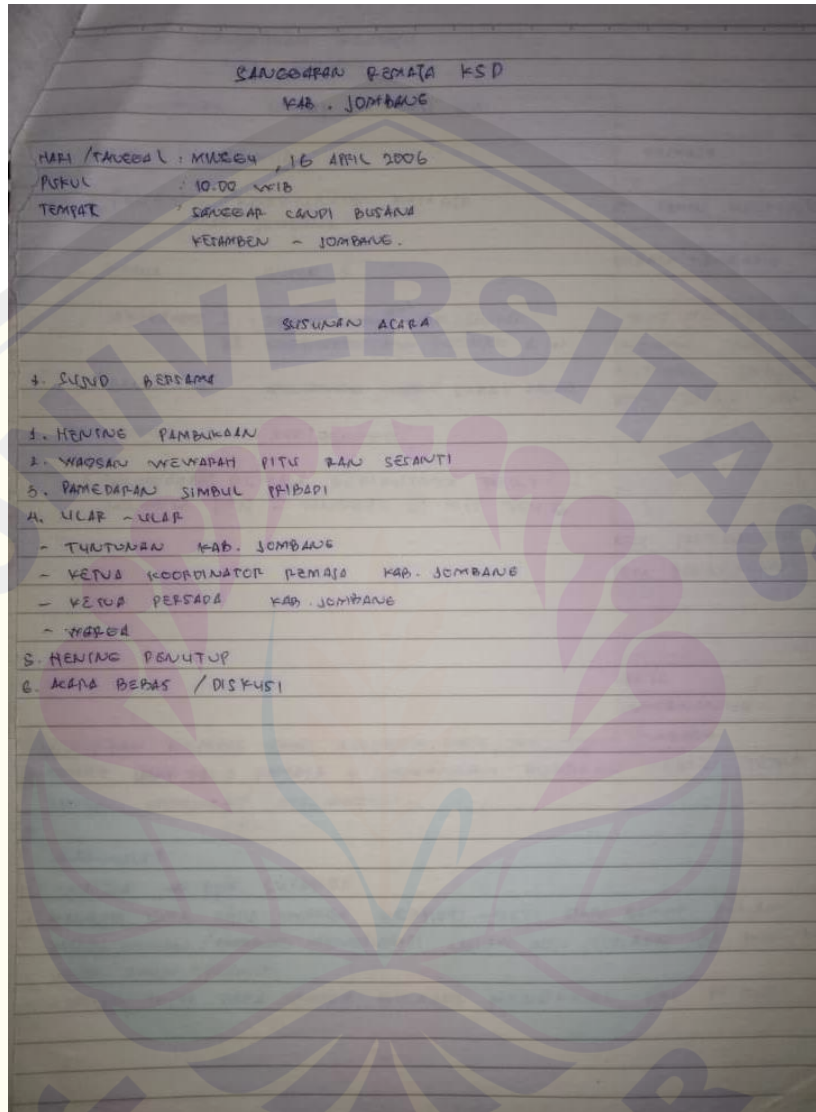 SANGGARAN REMAJA KSD
KAB. JOMBANG
HARI /TANGGAL : MINGGU, 16 APRIL 2006
PUKUL : 10.00 WIB
TEMPAT : SANGGAR CANDI BUSANA
KESAMBEN - JOMBANG.
SUSUNAN ACARA
SUJUD BERSAMA
1. HENING PAMBUKAAN
2. WAOSAN WEWARAH PITU DAN SESANTI
3. PAMEDARAN SIMBUL PRIBADI
4. ULAR - ULAR
- TUNTUNAN KAB. JOMBANG
- KETUA KOORDINATOR REMAJA KAB. JOMBANG
- KETUA PERSADA KAB. JOMBANG
- WARGA
5. HENING PENUTUP
6. ACARA BEBAS / DISKUSI
UNIVERSITAS